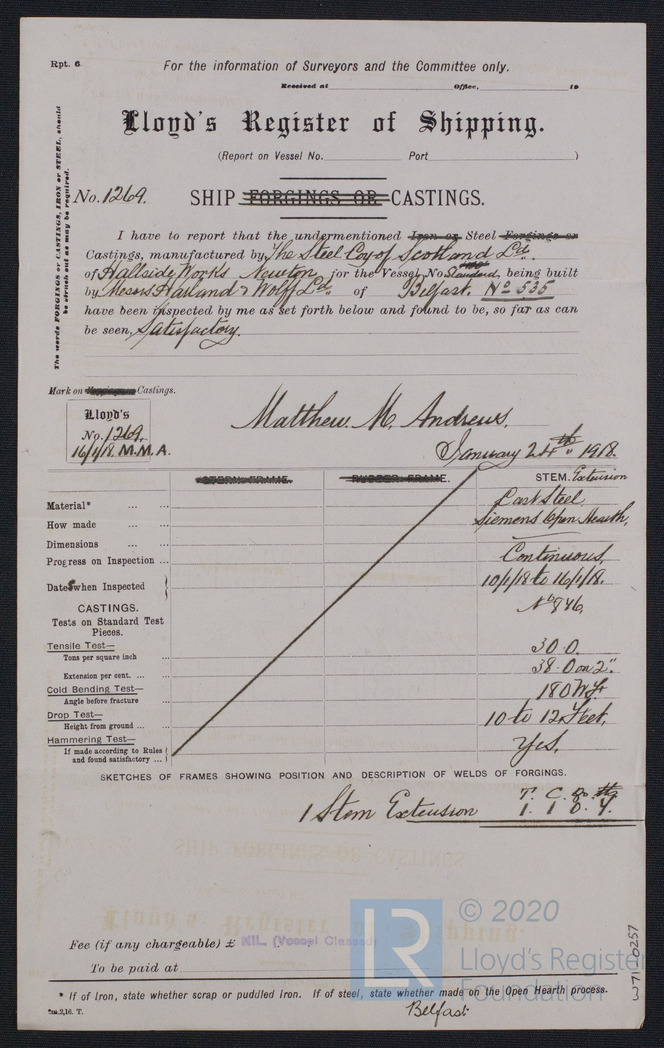 Rpt. 6
For the information of Surveyors and the Committee only.
Received at Office, 19
Lloyd's Register of Shipping.
(Report on Vessel No. Port )
The words FORGINGS or CASTINGS, IRON or STEEL, should
be struck out as may be required.
No. 1269.
SHIP FORGINGS OR CASTINGS.
I have to report that the undermentioned Iron or Steel Forgings or
Castings, manufactured by The Steel Coy of Scotland Ld.
of Hallside Works Newton, for the Vessel No. Standard, being built
by Messrs Harland & Wolff Ld. of Belfast. No 535
have been inspected by me as set forth below and found to be, so far as can
be seen, Satisfactory.
Mark on Forgings or Castings.
Lloyd's
No. 1269.
16/1/18. M.M.A.
Matthew. M. Andrews.
January 24th 1918.
STERN FRAME. RUDDER FRAME. STEM. Extension
Material* ... ... Cast Steel,
How made ... ... Siemens Open Hearth,
Dimensions ... ...
Progress on Inspection ... Continuous,
Dates when Inspected 10/1/18 to 16/1/18.
CASTINGS. No 846,
Tests on Standard Test
Pieces.
Tensile Test—
Tons per square inch 30.0.
Extension per cent. ... ... 38.0 on 2".
Cold Bending Test—
Angle before fracture 180
Drop Test—
Height from ground ... ... 10 to 12 Feet,
Hammering Test—
If made according to Rules
and found satisfactory ... Yes,
SKETCHES OF FRAMES SHOWING POSITION AND DESCRIPTION OF WELDS OF FORGINGS.
T. C. Q. lb
1 Stem Extension 1. 1 0. 4.
SHIP FORGINGS OR CASTINGS
Lloyd's Register of Shipping
Fee (if any chargeable) £ NIL. (Vessel Classed)
To be paid at
* If of Iron, state whether scrap or puddled Iron. If of steel, state whether made on the Open Hearth process.
2m.2,16. T.
Belfast
LR
© 2020
Lloyd's Register
Foundation
371-0257